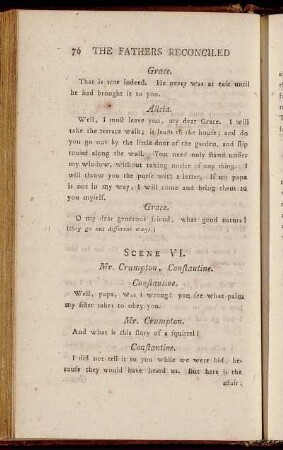 76 THE FATHERS RECONCILED
Grace.
That is true indeed. He never was at ease until
he had brought it to you.
Alicia.
Well, I must leave you, my dear Grace. I will
take the terrace walk; it leads to the house; and do
you go out by the little door of the garden, and slip
round along the wall. You need only stand under
my window, without taking notice of any thing. I
will throw you the purse with a letter. If my papa
is not in my way, I will come and bring them to
you myself.
Grace.
O my dear generous friend, what good nature!
(they go out different ways.)
SCENE VI.
Mr. Crumpton, Constantine.
Constantine.
Well, papa, was I wrong? you see what pains
my sister takes to obey you.
Mr. Crumpton.
And what is this story of a squirrel?
Constantine.
I did not tell it to you while we were hid, be-
cause they would have heard us. But here is the
affair: